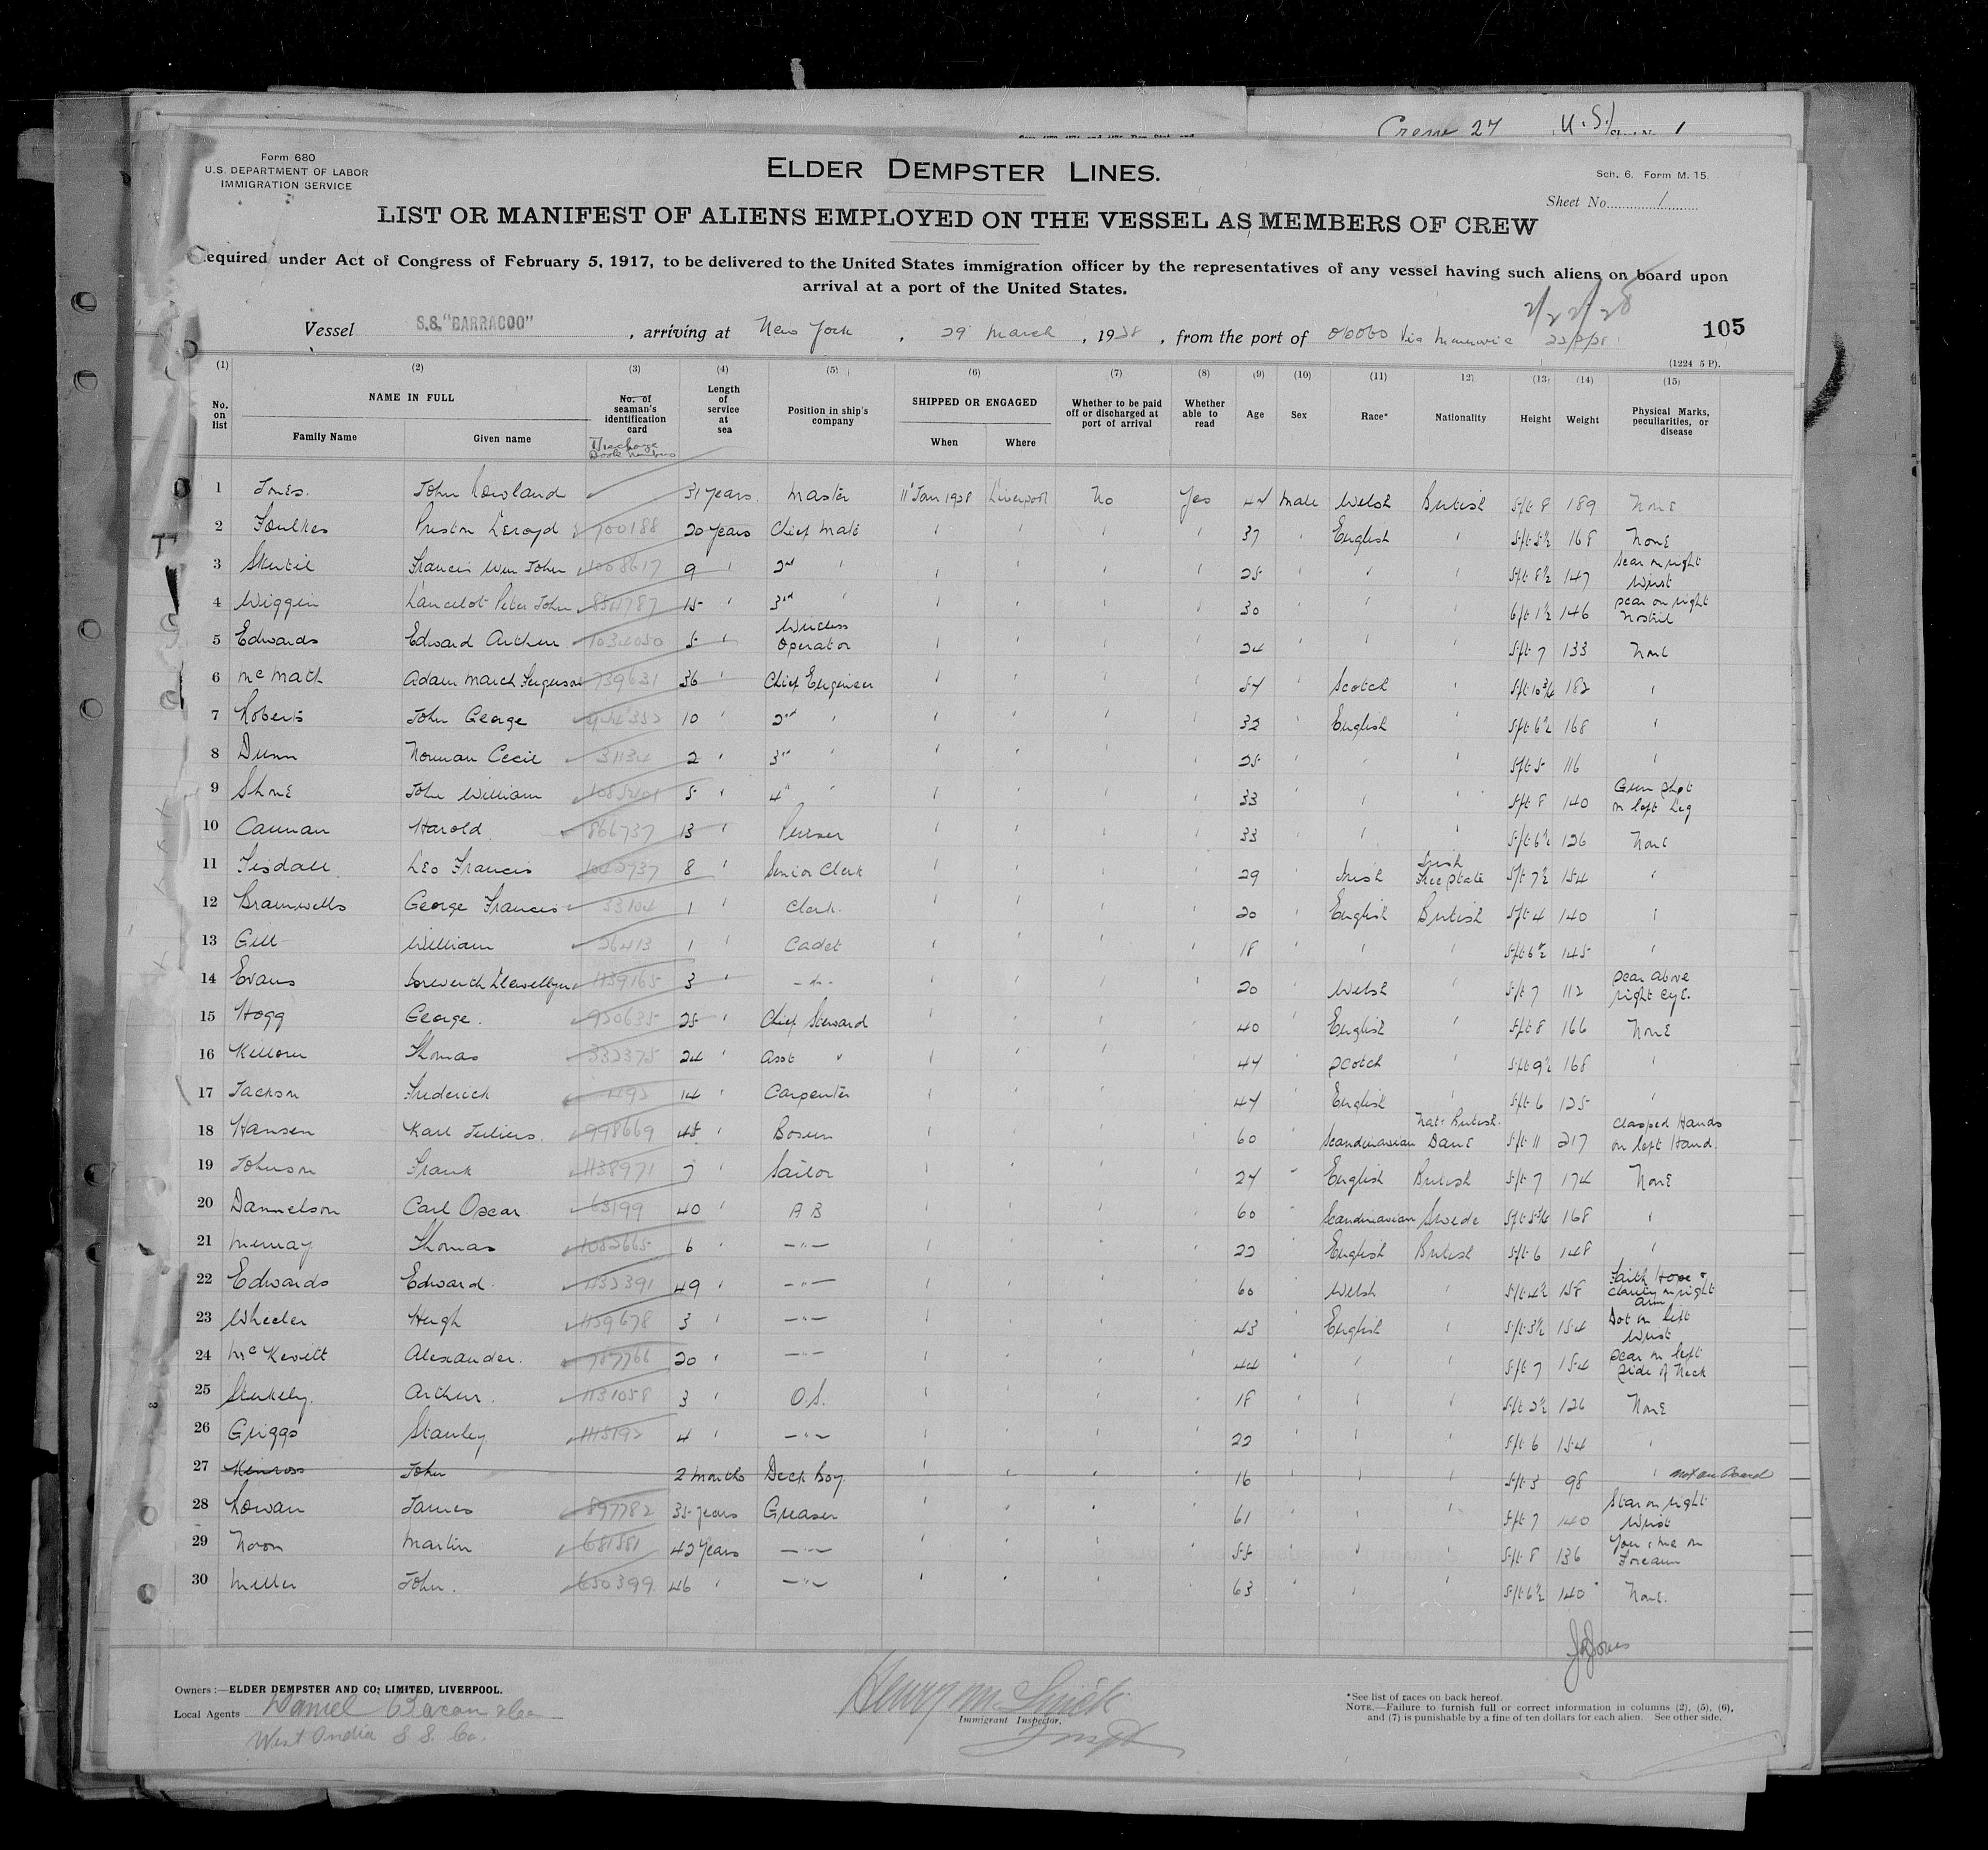 Crew 27 U.S. Sheet No. 1
Form 680
U.S. DEPARTMENT OF LABOR
IMMIGRATION SERVICE
ELDER DEMPSTER LINES.
Sch. 6. Form M. 15.
Sheet No. 1
LIST OR MANIFEST OF ALIENS EMPLOYED ON THE VESSEL AS MEMBERS OF CREW
Required under Act of Congress of February 5, 1917, to be delivered to the United States immigration officer by the representatives of any vessel having such aliens on board upon
arrival at a port of the United States.
2/22/28
Vessel S.S. "BARRACOO", arriving at New York, 29 March, 1928, from the port of Via 22/2/28 105
(1224 5 P).
(1) (2) (3) (4) (5) (6) (7) (8) (9) (10) (11) 12) (13) (14) (15)
No. on list NAME IN FULL Family Name Given name No. of seaman's identification card Discharge Book Numbers Length of service at sea Position in ship's company SHIPPED OR ENGAGED When Where Whether to be paid off or discharged at port of arrival Whether able to read Age Sex Race* Nationality Height Weight Physical Marks, peculiarities, or disease
1 Jones. John Rowland 31 years. Master 11 Jan 1928 Liverpool No Yes 47 Male Welsh British 5ft 8 189 None
2 Foulkes Preston 900188 20 years Chief Mate ' ' ' ' 37 ' English ' 5ft 5½ 168 None
3 Francis Wm John 1008617 9 ' 2nd ' ' ' ' ' 25 ' ' ' 5ft 8½ 147 Scar on right Wrist
4 Wiggin Lancelot Peter John 854787 15 ' 3rd ' ' ' ' ' 30 ' ' ' 6ft 1½ 146 Scar on right Nostril
5 Edwards Edward Arthur 1034050 5 ' Wireless Operator ' ' ' ' 24 ' ' ' 5ft 7 133 None
6 McMath Adam March Ferguson 739631 36 ' Chief Engineer ' ' ' ' 57 ' Scotch ' 5ft 10¾ 182 '
7 Roberts John George 10 ' 2nd ' ' ' ' ' 32 ' English ' 5ft 6½ 168 '
8 Dunn Norman Cecil 31134 2 ' 3rd ' ' ' ' 25 ' ' ' 5ft 5 116 '
9 Shone John William 1085401 5 ' 4th ' ' ' ' ' 33 ' ' ' 5ft 8 140 Gun Shot on left Leg
10 Cannan Harold 866737 13 ' Purser ' ' ' ' 33 ' ' ' 5ft 6½ 126 None
11 Tisdall Leo Francis 1042737 8 ' Senior Clerk ' ' ' ' 29 ' Irish Irish Free State 5ft 7½ 154 '
12 Bramwells George Francis 33104 1 ' Clerk. ' ' ' ' 20 ' English British 5ft 4 140 '
13 Gill William 26413 1 ' Cadet ' ' ' ' 18 ' ' ' 5ft 6½ 145 '
14 Evans Iorwerth Llewellyn 1139165 3 ' -"- ' ' ' ' 20 ' Welsh ' 5ft 7 112 Scar above right eye.
15 Hogg George. 950635 25 ' Chief Steward ' ' ' ' 40 ' English ' 5ft 8 166 None
16 Thomas 332375 24 ' Asst " ' ' ' ' 47 ' Scotch ' 5ft 9½ 168 '
17 Jackson Frederick 14 ' Carpenter ' ' ' ' 47 ' English ' 5ft 6 125 '
18 Hansen Karl Julius 998669 45 ' Bosun ' ' ' ' 60 ' Scandinavian Nat: British. Dane 5ft 11 217 Clasped Hands on left Hand.
19 Johnson Frank 1138971 7 ' Sailor ' ' ' ' 27 ' English British 5ft 7 174 None
20 Dannelson Carl Oscar 63199 40 ' A B ' ' ' ' 60 ' Scandinavian Swede 5ft 5¾ 168 '
21 Murray Thomas 1052665 6 ' -"- ' ' ' ' 22 ' English British 5ft 6 148 '
22 Edwards Edward. 432391 49 ' -"- ' ' ' ' 60 ' Welsh ' 5ft 4½ 158 Faith Hope & Charity on right arm
23 Wheeler Hugh 1159678 3 ' -"- ' ' ' ' 43 ' English ' 5ft 3½ 154 Dot on left Wrist
24 McKevitt Alexander. 20 ' -"- ' ' ' ' 44 ' ' ' 5ft 7 154 Scar on left side of Neck
25 Stukely. Arthur. 1131058 3 ' O S. ' ' ' ' 18 ' ' ' 5ft 2½ 126 None
26 Griggs Stanley 1115192 4 ' -"- ' ' ' ' 22 ' ' ' 5ft 6 154 '
27 Kinross John 2 months Deck Boy ' ' ' ' 16 ' ' ' 5ft 3 98 ' not on board
28 Rowan James 897782 35 years Greaser ' ' ' ' 61 ' ' ' 5ft 7 140 Star on right Wrist
29 Noon Martin 681581 42 years -"- ' ' ' ' 55 ' ' ' 5ft 8 136 You & me on Forearm
30 Miller John. 650399 46 ' -"- ' ' ' ' 63 ' ' ' 5ft 6½ 140 None.
J R Jones
Owners:—ELDER DEMPSTER AND CO; LIMITED, LIVERPOOL.
Local Agents Daniel Bacon
West India S S. Co.
Immigrant Inspector.
*See list of races on back hereof.
NOTE.—Failure to furnish full or correct information in columns (2), (5), (6),
and (7) is punishable by a fine of ten dollars for each alien. See other side.